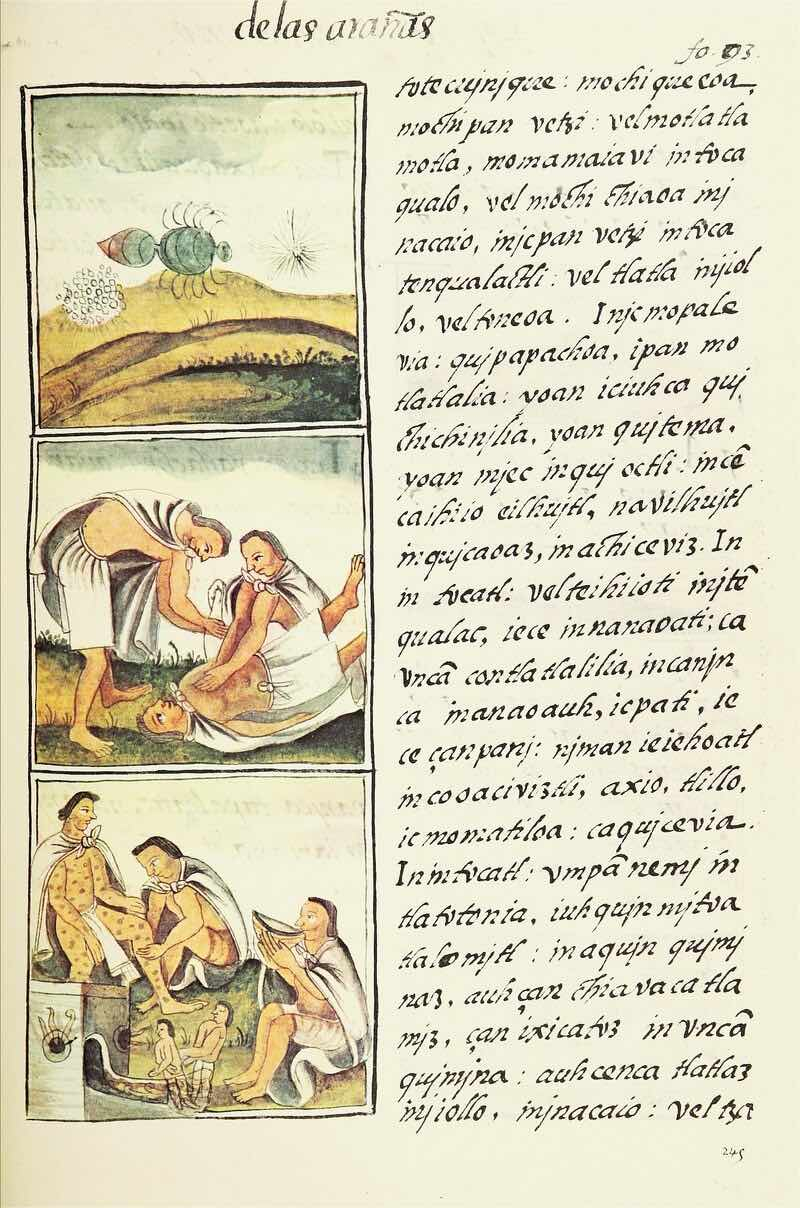 de las arañas
fo. 93.
totecujnjque: mochi quecoa,
mochi pan vetzi: vel motlatla
motla, momamaiavi in toca
qualo, vel mochi chiaoa inj
nacaio, injcpan vetzi in toca
tenqualactli: vel tlatla injiol
lo, vel toneoa. Injc mopale
via: qujpapachoa, ipan mo
tlatlalia: yoan iciuhca quj
chichinjlia, yoan qujtema,
yoan mjec inquj octli: in cẽ
caihiio eilhujtl, navilhujtl
in qujcaoaz, in achiceviz. In
in tocatl: vel teihiioti injtẽ
qualac, iece in nanaoati; ca
vncã contlatlalilia, in canjn
ca inanaoauh, ic pati, ie
ce çan panj: njman ie iehoatl
in cooaciviztli, axio, tlillo,
ic momatiloa: ca qujcevia.
Inin tocatl: vmpã nemj in
tlatotonia, iuhqujn mjtoa
tlalomjtl: in aqujn qujmj
naz, auh çan chiavacatla
mjz, çan ixicatoz in vncã
qujmjna: auh cenca tlatlaz
injiollo, injnacaio: vel tza
245